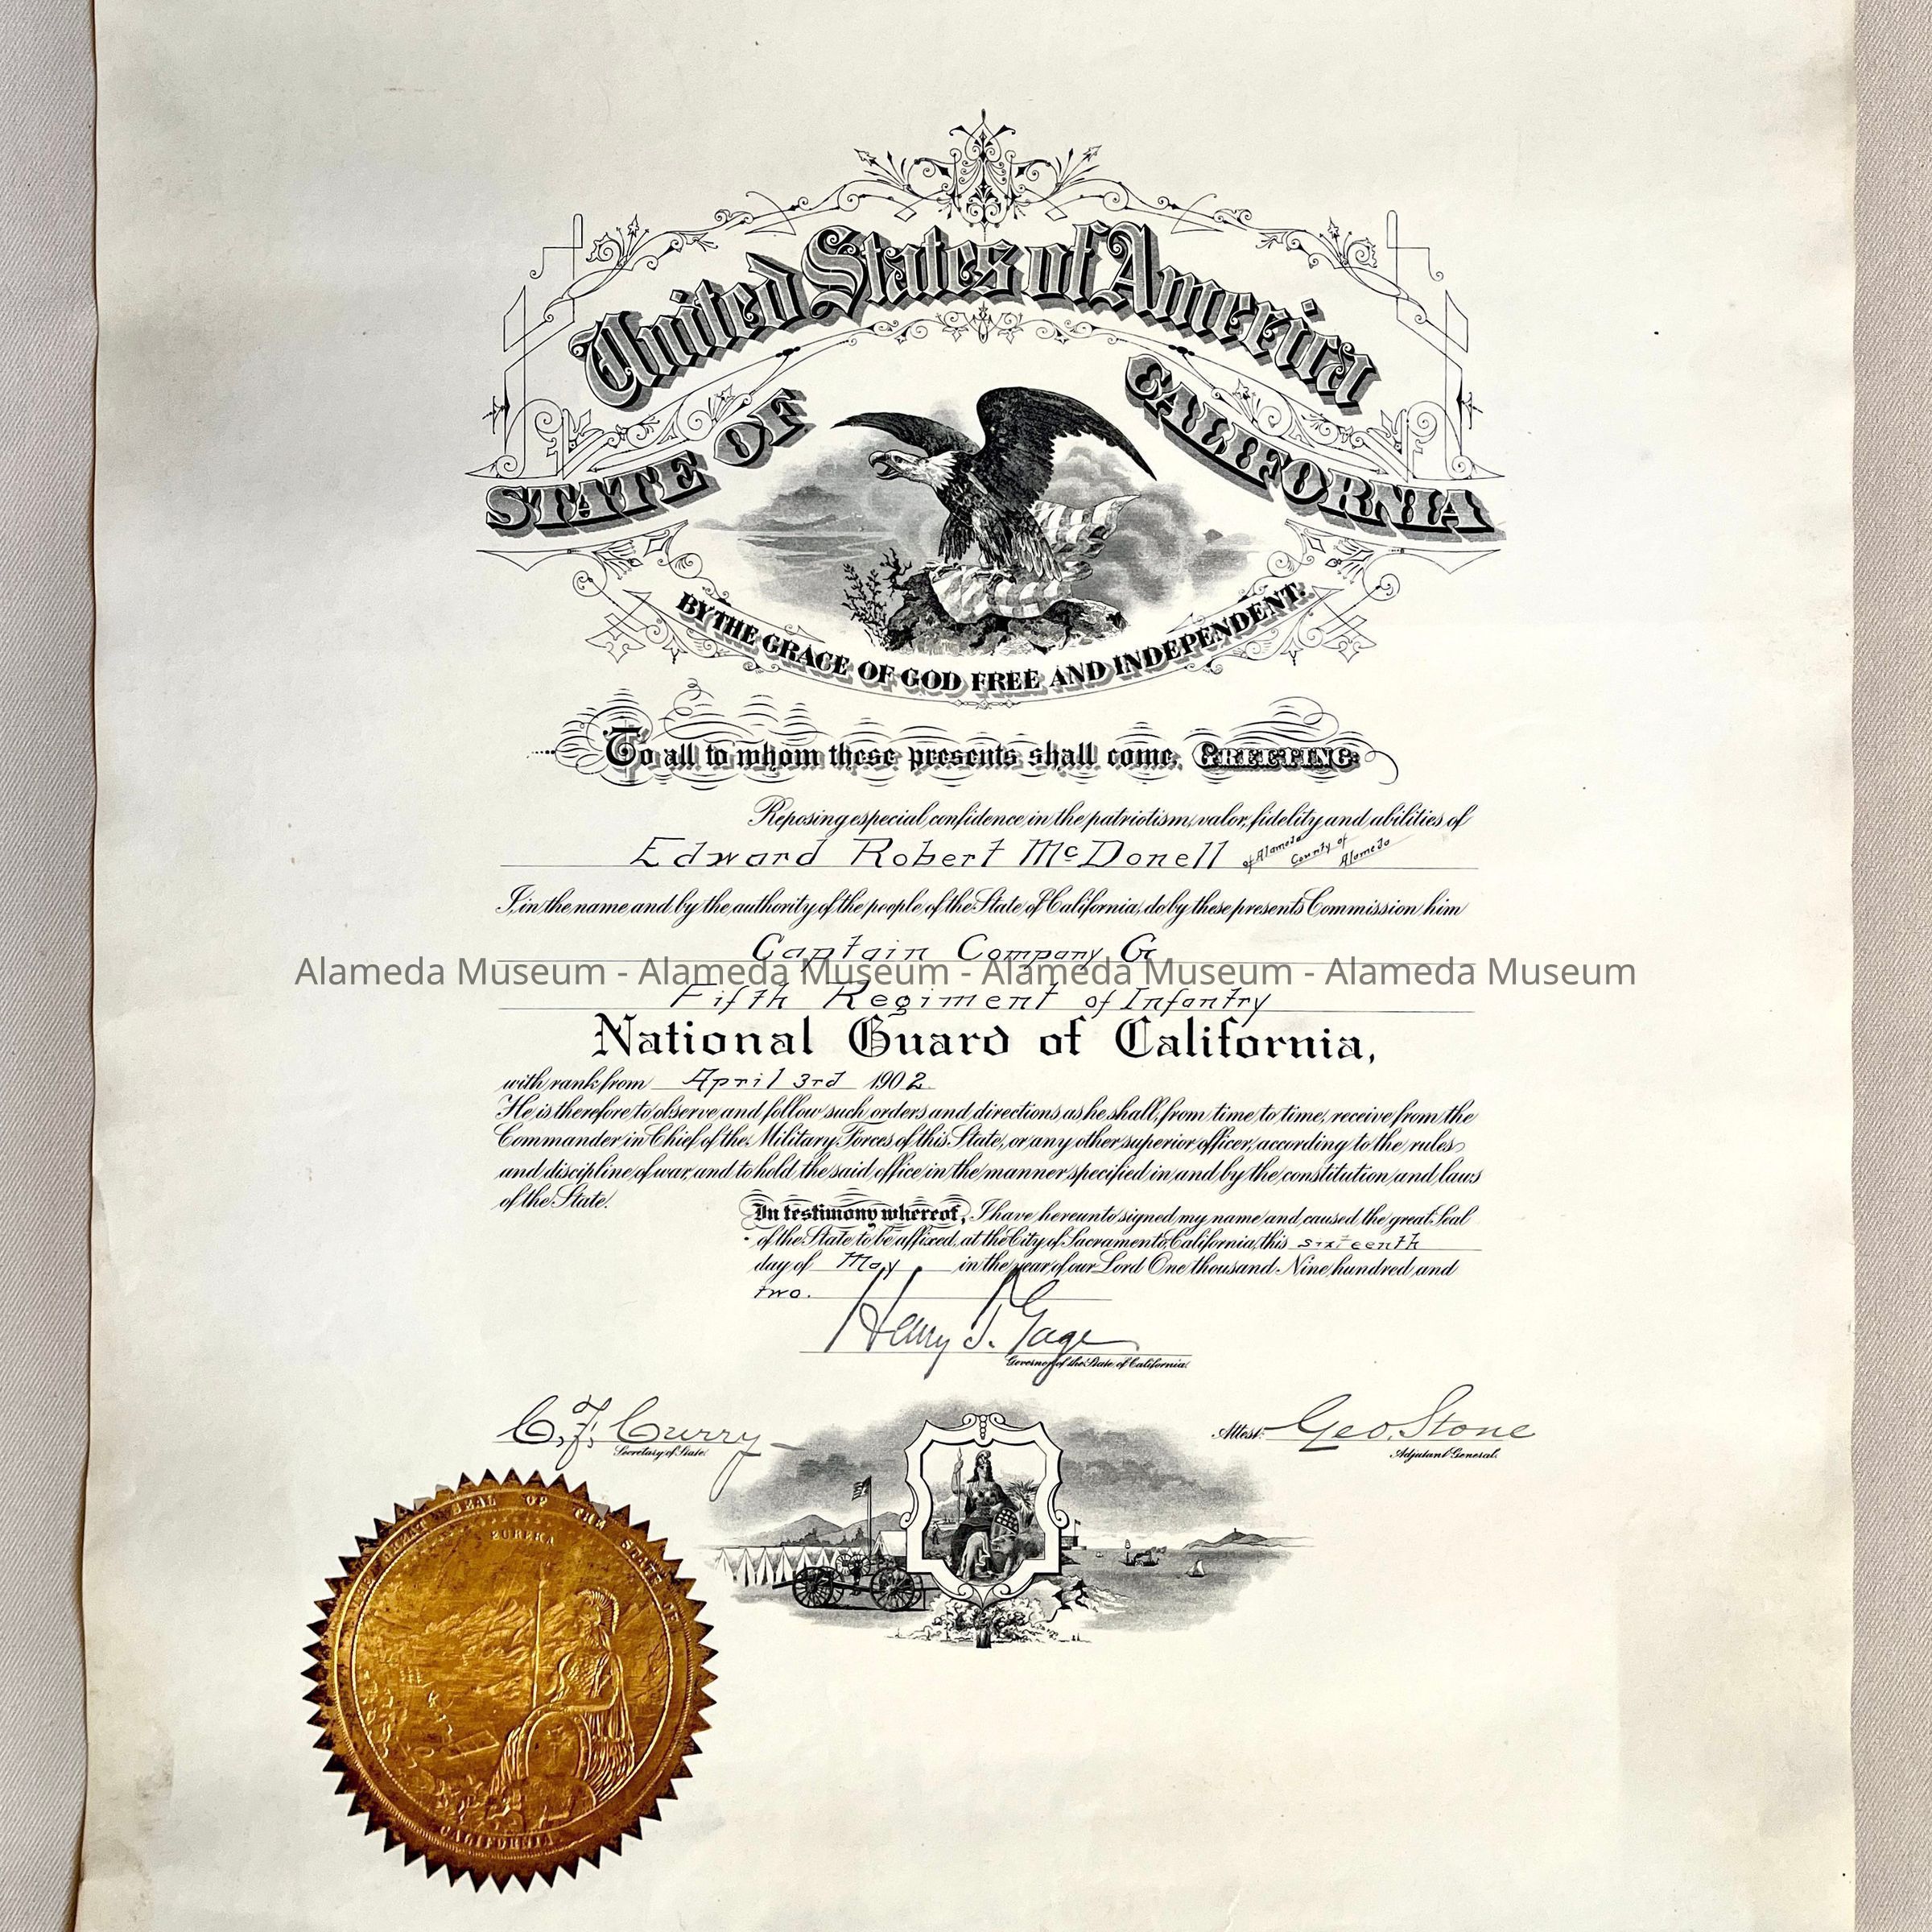 United States of America
STATE OF CALIFORNIA
BY THE GRACE OF GOD FREE AND INDEPENDENT.
To all to whom these presents shall come, GREETING:
Reposing especial confidence in the patriotism, valor, fidelity and abilities of
Edward Robert McDonell of Alameda County of Alameda
I, in the name and by the authority of the people of the State of California, do by these presents Commission him
Captain Company G
Alameda Museum - Alameda Museum - Alameda Museum - Alameda Museum
Fifth Regiment of Infantry
National Guard of California,
with rank from April 3rd 1902.
He is therefore to observe and follow such orders and directions as he shall, from time to time, receive from the
Commander in Chief of the Military Forces of this State, or any other superior officer, according to the rules
and discipline of war, and to hold the said office in the manner specified in and by the constitution and laws
of the State.
In testimony whereof, I have hereunto signed my name and caused the great Seal
of the State to be affixed, at the City of Sacramento, California, this sixteenth
day of May in the year of our Lord One thousand Nine hundred and
two.
Henry T. Gage
Governor of the State of California.
C. F. Curry
Secretary of State.
Attest: Geo. Stone
Adjutant General.
GREAT SEAL OF THE STATE OF
EUREKA
CALIFORNIA